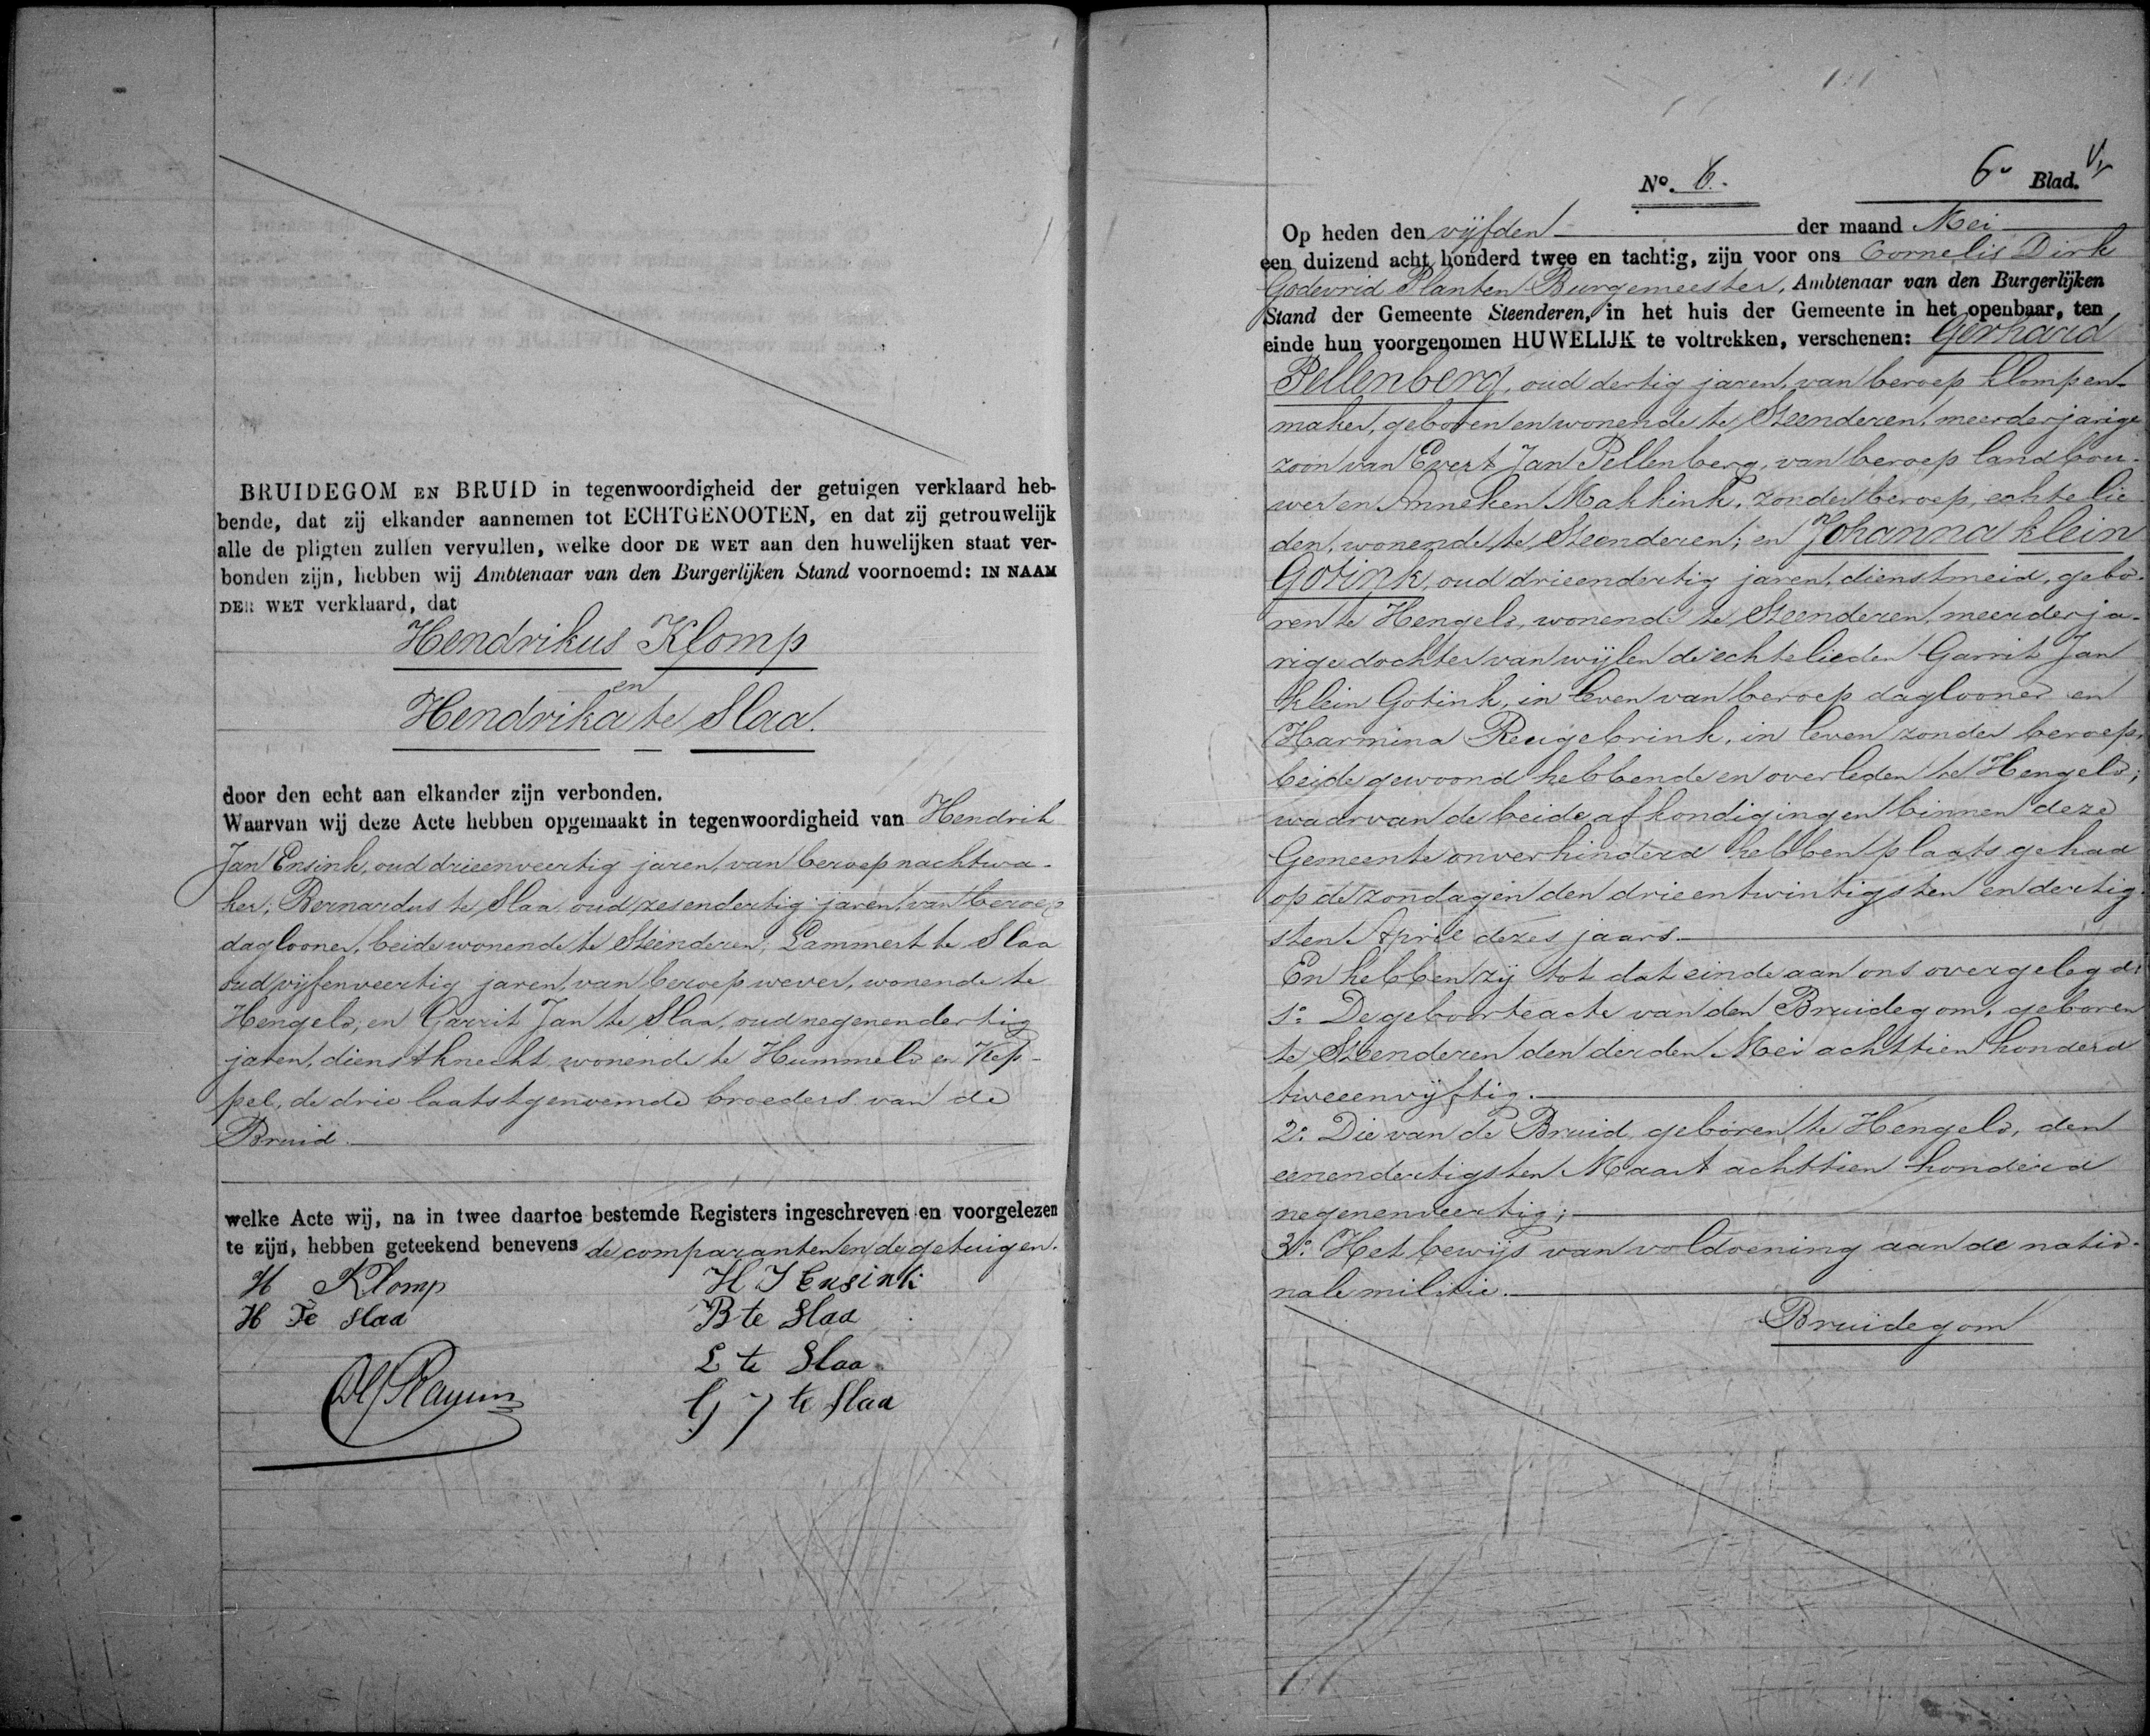 BRUIDEGOM EN BRUID in tegenwoordigheid der getuigen verklaard heb-
bende, dat zij elkander aannemen tot ECHTGENOOTEN, en dat zij getrouwelijk
alle de pligten zullen vervullen, welke door DE WET aan den huwelijken staat ver-
bonden zijn, hebben wij Ambtenaar van den Burgerlijken Stand voornoemd: IN NAAM
DER WET verklaard, dat
Hendrikus Klomp
en
Hendrika te Slaa.
door den echt aan elkander zijn verbonden.
Waarvan wij deze Acte hebben opgemaakt in tegenwoordigheid van Hendrik
Jan Ensink, oud drieenveertig jaren, van beroep nachtwa-
ker; Bernardus te Slaa oud zesendertig jaren, van beroep
daglooner, beide wonende te Steenderen; Lammert te Slaa
oud vijfenveertig jaren, van beroep wever, wonende te
Hengelo; en Garrit Jan te Slaa, oud negenendertig
jaren, dienstknecht, wonende te Hummelo en Kep-
pel, de drie laatstgenoemde broeders van de
Bruid.
welke Acte wij, na in twee daartoe bestemde Registers ingeschreven en voorgelezen
te zijn, hebben geteekend benevens de comparanten en de getuigen.
H Klomp H J Ensink
H Te Slaa B te Slaa
L te Slaa
G J te Slaa
No. 6. 6e Blad.
Op heden den vijfden der maand Mei
een duizend acht honderd twee en tachtig, zijn voor ons Cornelis Dirk
Godevrid Planten Burgemeester, Ambtenaar van den Burgerlijken
Stand der Gemeente Steenderen, in het huis der Gemeente in het openbaar, ten
einde hun voorgenomen HUWELIJK te voltrekken, verschenen: Gerhard
Pellenberg, oud dertig jaren, van beroep klompen-
maker, geboren en wonende te Steenderen, meerderjarige
zoon van Evert Jan Pellenberg, van beroep landbou-
wer en Anneken Makkink, zonder beroep, echtelie
den, wonende te Steenderen; en Johanna klein
Gotink, oud drieendertig jaren, dienstmeid, gebo-
ren te Hengelo, wonende te Steenderen, meerderja-
rige dochter van wijlen de echtelieden Garrit Jan
klein Gotink, in leven van beroep daglooner en
Harmina Reugebrink, in leven zonder beroep,
beide gewoond hebbende en overleden te Hengelo;
waarvan de beide afkondigingen binnen deze
Gemeente onverhinderd hebben plaats gehad
op de zondagen den drieentwintigsten en dertig-
sten April dezes jaars.
En hebben zij tot dat einde aan ons overgelegd:
1o. De geboorteacte van den Bruidegom, geboren
te Steenderen den derden Mei achttien honderd
tweeenvijftig.
2o. Die van de Bruid geboren te Hengelo, den
eenendertigsten Maart achttien honderd
negenenveertig;
3o. Het bewijs van voldoening aan de natio-
nale militie.
Bruidegom